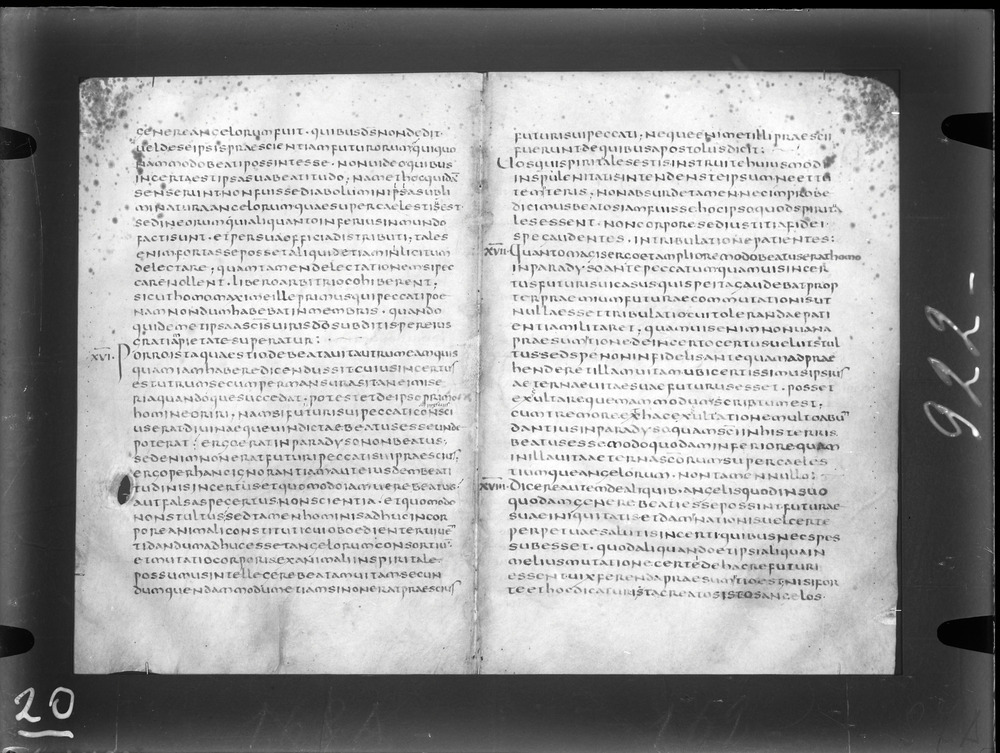 genereangelorumfuit·quibusdsnondedit
ueldeseipsispraescientiamfuturorumquiquo
nammodobeatipossintesse·nonuideoquibus
incertaestipsasuabeatitudo,namethocquidā
senserintnonfuissediabolumin
minaturaangelorumquaesupercaelestisest·
sedineorumquialiquantoinferiusinmundo
factisunt·etpersuaofficiadistributi,tales
enimfortasseposset aliquidetiaminlicitum
delectare,quamtamendelectationemsipec
carenollent·liberoarbitriocohiberent,
sicuthomomaximeilleprimusquipeccatipoe
namnondumhabebatinmembris·quando
quidemetipsaasc̄isuirisdōsubditispereius
gratiapietatesuperatur:
XVI·Porroistaquaestiodebeatauitautrumeamquis
quamiamhaberedicendussitcuiusincertus
estutrumsecumpermansurasitaneimise
riaquandoquesuccedat,potestetdeipsoprimo
homineoriri,namsifuturisuipeccaticonsci
useratdiuinaequeuindictaebeatusesseunde
poterat?ergoeratinparadysononbeatus;
sedenimnoneratfuturipeccatisuipraescius
ergoperhancignorantiamauteiusdembeati
tudinisincertusetquomodoiamuerebeatus·
autfalsaspecertusnonscientia·etquomodo
nonstultussedtamenhominisadhucincor
poreanimaliconstituticuioboedienteruiuē
tidandumadhucessetangelorumconsortiū·
etmutatiocorporisexanimaliinspiritale·
possumusintellegerebeatamuitamsecun
dumquendammodumetiamsinoneratpraescius
futurisuipeccati;nequeenimetillipraescii
fueruntdequibusapostolusdicit:
Uosquispiritalesestisinstruitehuiusmodi
inspūlenitatisintendensteipsumneettu
temteris,nonabsurdetamennecimprobe
dicimusbeatosiamfuissehocipsoquodspirita
lesessent·noncorporesediustitiafidei·
spegaudentes·intribulationepatientes:
XVII·Quantomagisergoetamplioremodobeatuserathomo
inparadysoantepeccatumquamuisincer
tusfuturisuicasusquispeitagaudebatprop
terpraemiumfuturaecommutationisut
nullaessettribulatiocuitolerandaepati
entiamilitaret,quamuisenimnonuana
praesumtionedeincertocertusuelutstul
tussedspenoninfidelisantequamadprae
henderetillamuitamubicertissimusipsius
aeternaeuitaesuaefuturusesset·posset
exultarequemammodumscribtumest,
cumtremoreethacexultationemultoabū
dantiusinparadysoquamsc̄iinhisterris
beatusessemodoquodaminferiorequam
inillauitaaeternasc̄orumsupercaeles
tiumqueangelorum·nontamennullo:
XVIII·Dicereautemdealiquibusangelisquodinsuo
quodamgenerebeatiessepossintfuturae
suaeiniquitatisetdamnationisuelcerte
perpetuaesalutisincertiquibusnecspes
subesset·quodaliquandoetipsialiquain
meliusmutationecertedehacrefuturi
essentuixferendapraesumtioest;nisifor
teethocdicaturistacreatosistosangelos·
922-
20